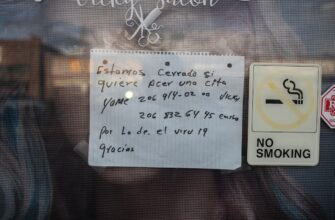 Vicky Salon
Estamos Cerrado si
quiere Acer una cita
yame 206 914-02 00 Vicky
206 832 64 45
Por Lo de el viru 19
gracias
NO
SMOKING